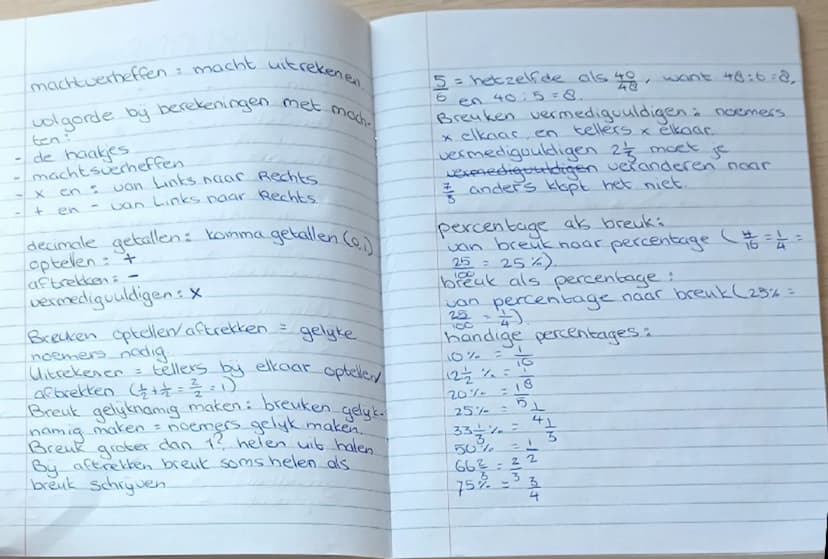 machtverheffen = macht uitrekenen
volgorde bij berekeningen met mach-
ten:
- de haakjes
- machtsverheffen
- x en : van Links naar Rechts
- + en - van Links naar Rechts
decimale getallen = komma getallen (0,1)
optellen = +
aftrekken = -
vermedigvuldigen = x
Breuken optellen/aftrekken = gelyke
noemers nodig
Uitrekenen = tellers bij elkaar optellen/
aftrekken (1/2 + 1/2 = 2/2 = 1)
Breuk gelyknamig maken: breuken gelyk-
namig maken = noemers gelyk maken.
Breuk groter dan 1? helen uit halen
By aftrekken breuk soms helen als
breuk schryven
5/6 = hetzelfde als 40/48, want 48:6=8,
en 40:5=8.
Breuken vermedigvuldigen: noemers
x elkaar en tellers x elkaar
vermedigvuldigen 2 1/3 moet je
vermedigvuldigen veranderen naar
7/3 anders klopt het niet.
percentage als breuk:
van breuk naar percentage (4/16 = 1/4 =
25/100 = 25%)
breuk als percentage:
van percentage naar breuk (25% =
25/100 = 1/4)
handige percentages:
10% = 1/10
12 1/2 % = 1/8
20% = 1/5
25% = 1/4
33 1/3 % = 1/3
50% = 1/2
66 2/3 = 2/3
75% = 3/4